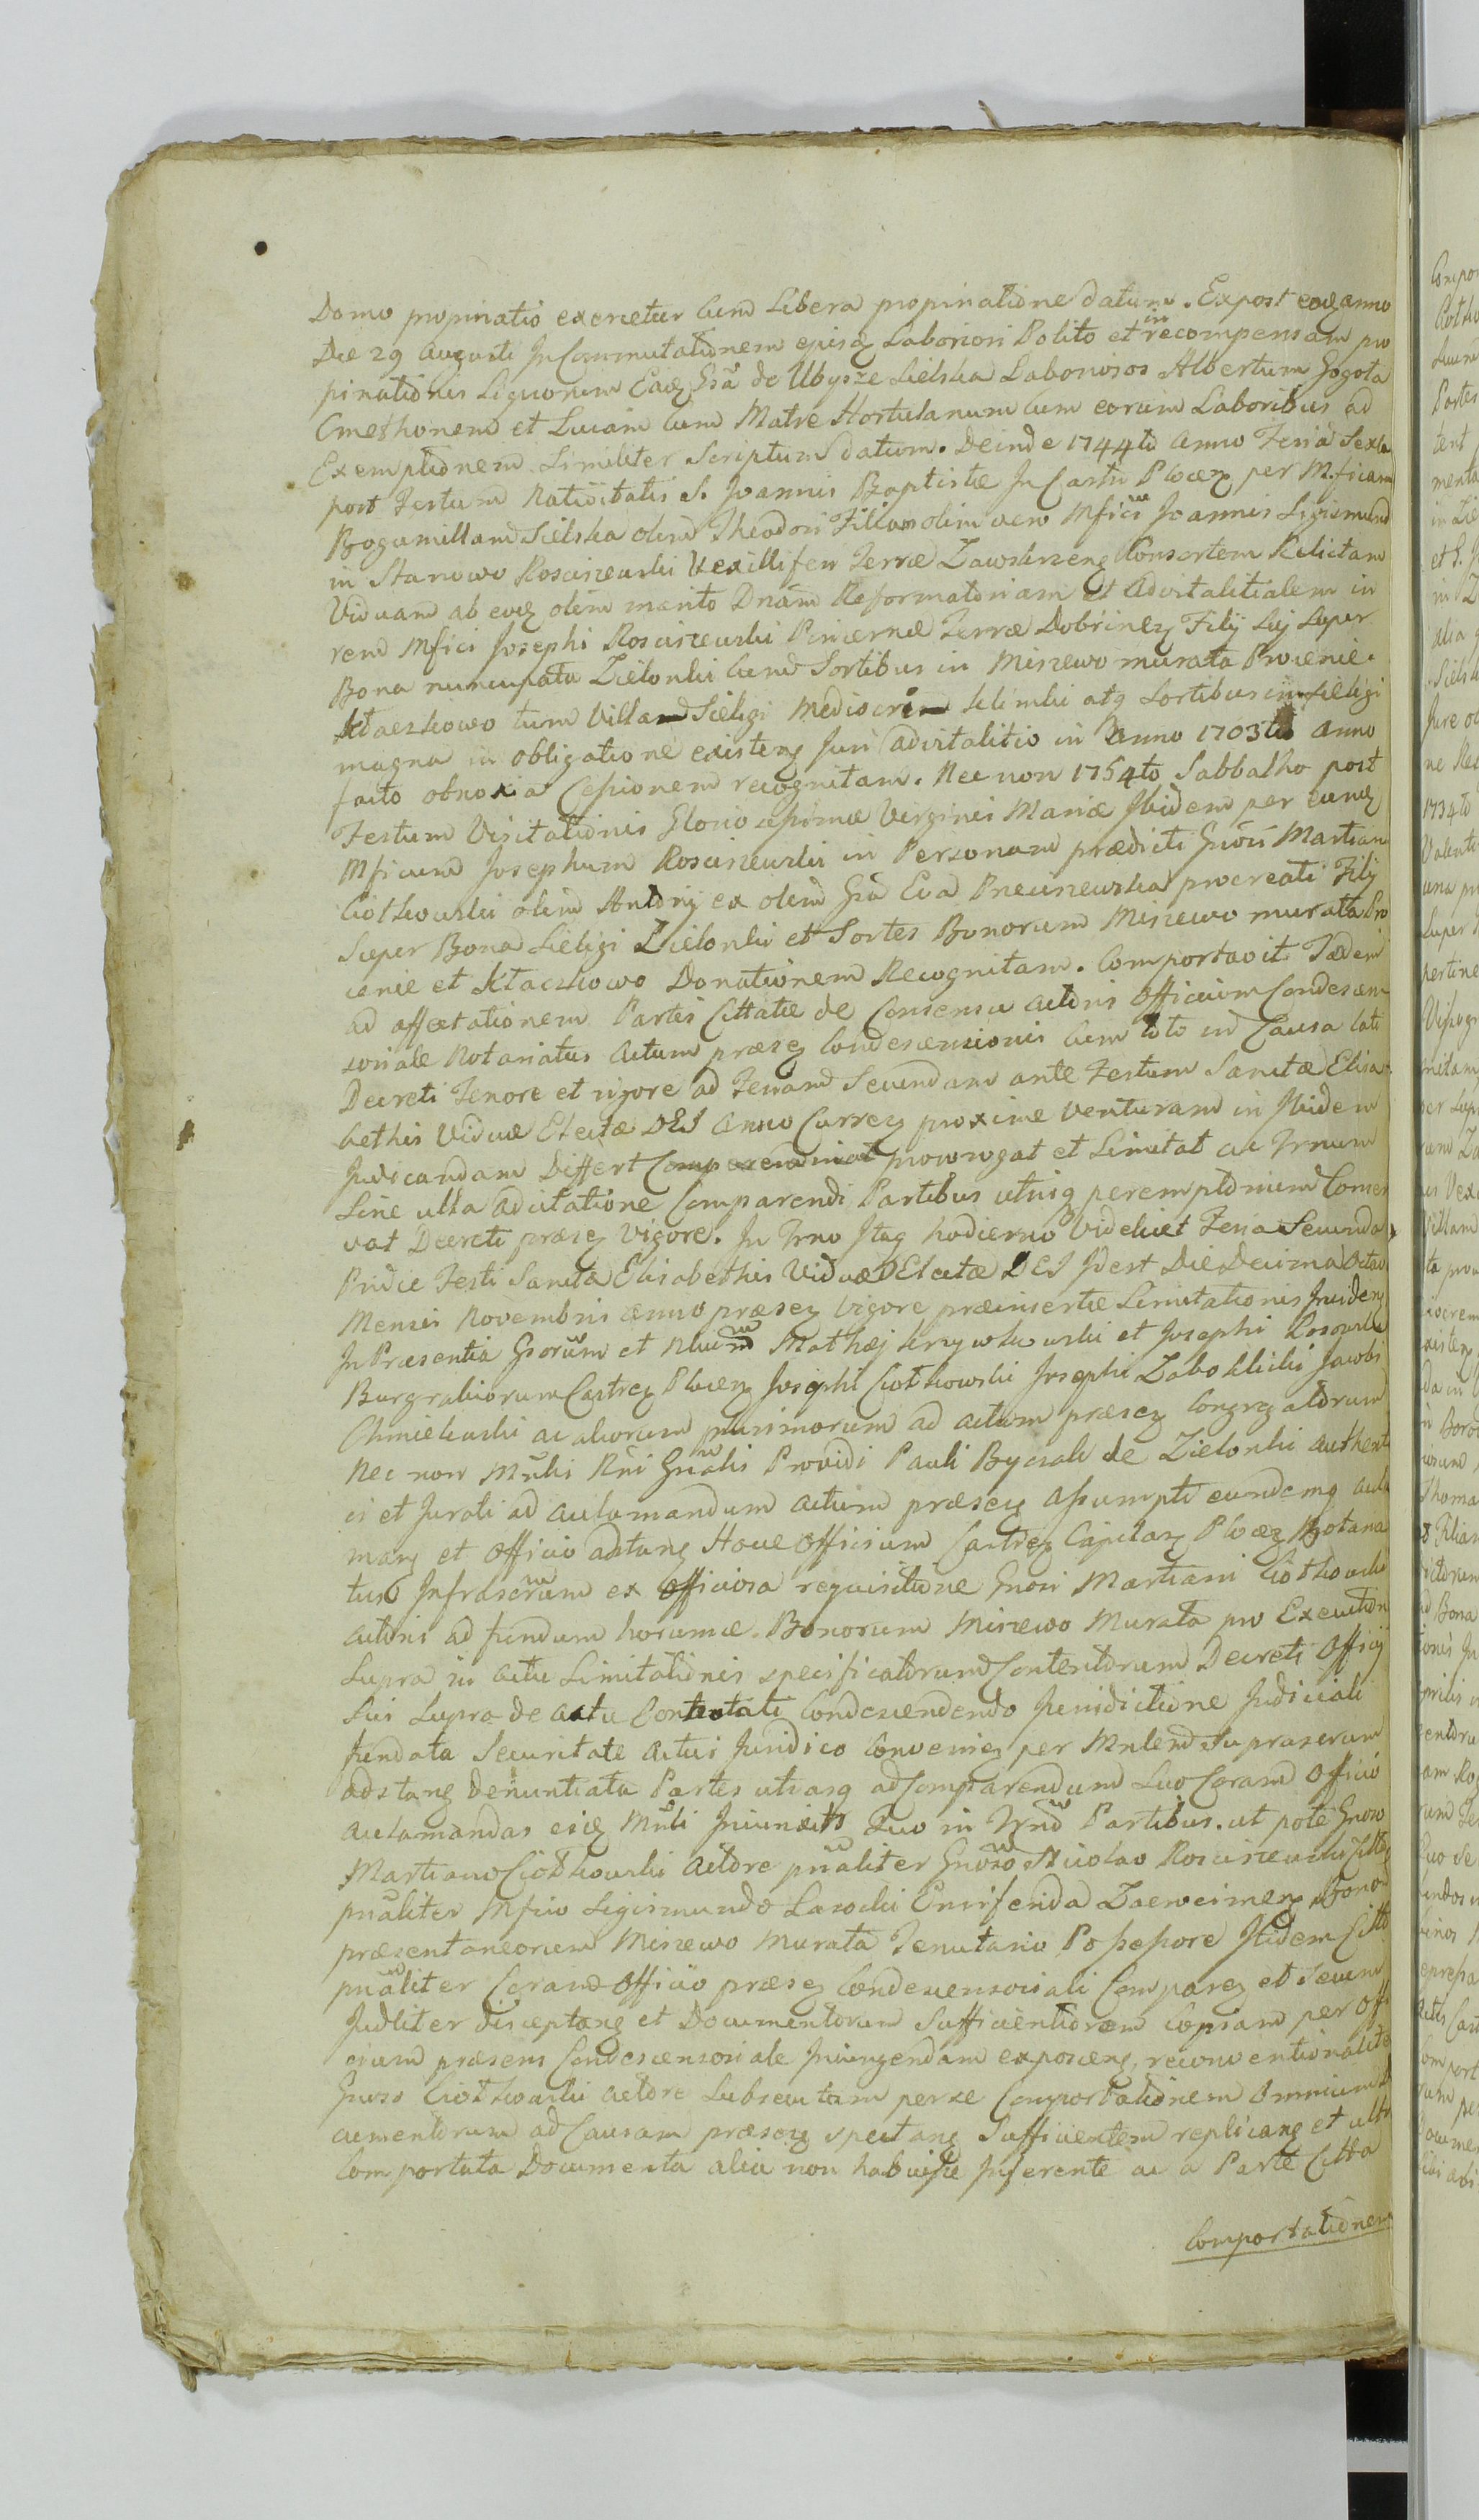 Domo propinatio exercetur cum Libera propinatione datum. Expost eoq anno
Die 29 Augusti In Commutationem ejusq Laboriosi Polito et in recompensam pro
pinationis Liquorum Eadq Gsa de Ubysze Sielska Laboriosos Albertum Gogota
Cmethonem et Lucam cum Matre Hortulanum cum eorum Laboribus ad
Exemptionem Similiter Scriptum datum. Deinde 1744to Anno Feria Sexta
post Festum Nativitatis S. Joannis Baptistæ In Castri Plocen per M.ficam
Bogumillam Sielska olim Theodori Filiam olim vero Mfici Joannis Sigismund
in Starowo Rosciszewski Vexilliferi Terræ Zawskrzeng Consortem Relictam
Viduam ab eoq olim marito Dnam Reformatoriam et Advitalitialem in
rem Mfici Josephi Rosciszewski Pincernæ Terræ Dobrinen Filij Sui Super
Bona nuncupata Zielonki cum Sortibus in Miszewo murata Procenie
Ktaczkowo tum Villam Sieligi Mediocrem Klimki atq Sortibus in Sieligi
magna in obligatione existen Juri advitalitio in Anno 1703tio anno
facto obnoxia Cessionem recognitam. Nec non 1754to Sabbatho post
Festum Visitationis Gloriosissimæ Virginis Mariæ Ibidem per eunq
Mficum Josephum Rosciszewski in Personam prædicti Gnosi Martiani
Ciotkowski olim Antonij ex olim Gsa Eva Pneciszewska procreati Filij
Super Bona Sieligi Zielonki et Sortes Bonorum Miszewo murata Pro
cenie et Ktaczkowo Donationem Recognitam. Comportavit Tædem
ad affectationem Partis Cittatæ de Consensu Actoris Officium Condescen
soriale Notariatus Actum præsen Condescensionis cum toto in Causa lati
Decreti Tenore et rigore ad Feriam Secundam ante Festum Sanctæ Elisa
bethis Viduæ Electæ DEI Anno Curren proxime venturam in Ibidem
Judicandam Differt prorogat et Limitat ac Trnum
Sine ulla adcitatione Comparendi Partibus utrisq peremptorium Conser
vat Decreti præsen Vigore. In Trno Itaq hodierno Videlicet Feria Secunda
Pridie Festi Sanctæ Elisabethis Viduæ Electæ DEI Idest Die Decima Octava
Mensis Novembris anno præsen Vigore præinsertæ Limitationis Inciden
In Præsentia Gsorum et Nbium Mathæj Krzywkowski et Josephi Kosowski
Burgrabiorum Castren Plocen Josephi Ciotkowski Josephi Zaboklicki Jacobi
Chmielewski ac aliorum plurimorum ad actum præsen Congregatorum
Nec non Mnlis Rni Gnalis Providi Pauli Byczak de Zielonki authenti
ci et Jurati ad acclamandum actum præsen Assumpti eundemq accla
man et Officio adstang Hocce Officium Castren Capitan Plocen Notaria
tus Infrascrum ex Officiosa requisitione Gnosi Martiani Ciotkowski
Actoris ad fundum horumce Bonorum Miszewo Murata pro Executione
Supra in actu Limitationis specificatorum Contentorum Decreti Officij
Sui Supra de actu Contentati Condescendendo Jurisdictione Judiciali
fundata Securitate actui Juridico Convenien per Mnlem Suprascrum
adstang Denuntiata Partes utrasq ad Comparendum Suo Coram Officio
acclamandas eidq Mnli Injunxit Quo in Trno Partibus. ut pote Gnoso
Martiano Ciotkowski Actore pnaliter Gnoso Nicolao Rosciszewski Citto
pnaliter Mfico Sigismundo Lasocki Ensiferida Zacweimen Bono
præsentaneorum Miszewo Murata Tenutario Possessore Itidem Citto
pnaliter Coram Officio præsen Condescensoriali Comparen et Secum
Judliter disceptang et Documentorum Sufficientiorem Copiam per Offi
cium præsens Condescensoriale Injungendam exposceng, reconventionaliter
Gnoso Ciotkowski Actore Subsecutam per se Comportationem Omnium Do
cumentorum ad Causam præsen spectang Sufficientem replicang et ultra
Comportata Documenta alia non habuisse Inferente ac a Parte Citta
Comportationem